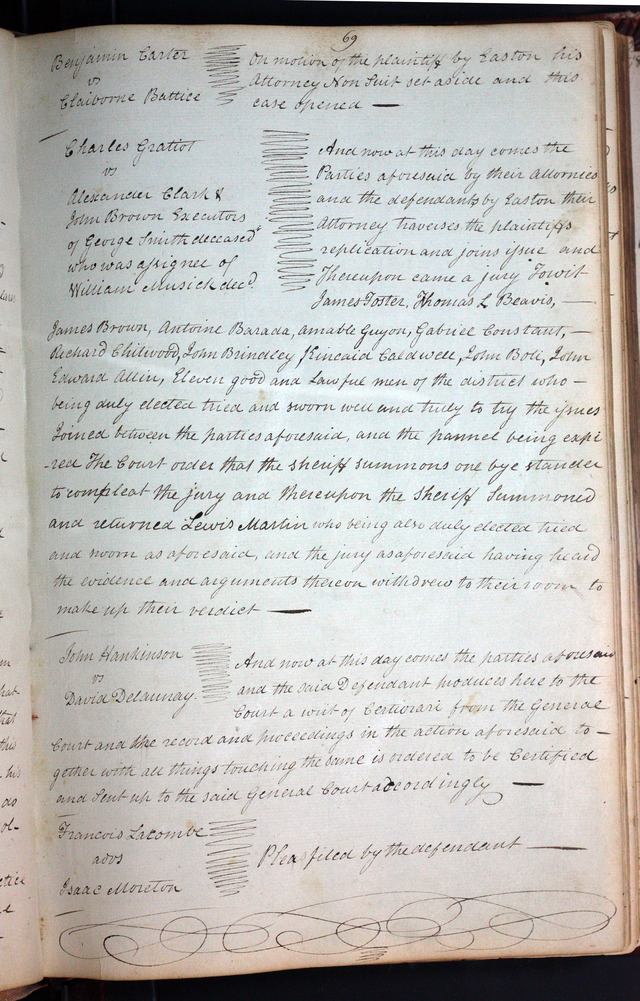 69
Benjamin Carter
vs
Claiborne Battice
On motion of the plaintiff by Easton his
Attorney Non Suit set aside and this
case opened —
Charles Gratiot
vs
Alexander Clark &
John Brown Executors
of George Smith deceased
who was assignee of
William Musick decd.
And now at this day comes the
Parties aforesaid by their Attornies
and the defendants by Easton their
Attorney traverses the plaintiffs
replication and joins issue and
Thereupon came a jury Towit
James Foster, Thomas L Beavis, —
James Brown, Antoine Barada, amable Guyon, Gabriel Constant, —
Richard Chitwood, John Brindley, Kincaid Caldwell, John Boli, John
Edward Allin, Eleven good and Lawful men of the district who —
being duly elected tried and sworn well and truly to try the issues
Joined between the parties aforesaid, and the pannel being expi
-red The Court order that the sheriff summons one bye stander
to compleat the jury and thereupon the Sheriff Summoned
and returned Lewis Martin who being also duly elected tried
and sworn as aforesaid, and the jury as aforesaid having heard
the evidence and arguments thereon withdrew to their room to
make up their verdict —
John Hankinson
vs
David Delaunay
And now at this day comes the parties aforesaid
and the said Defendant produces here to the
Court a writ of Certiorari from the General
Court and the record and proceedings in the action aforesaid to-
gether with all things touching the same is ordered to be Certified
and Sent up to the said General Court accordingly —
Francois Lacombe
advs
Isaac Moreton
Plea filed by the defendant —